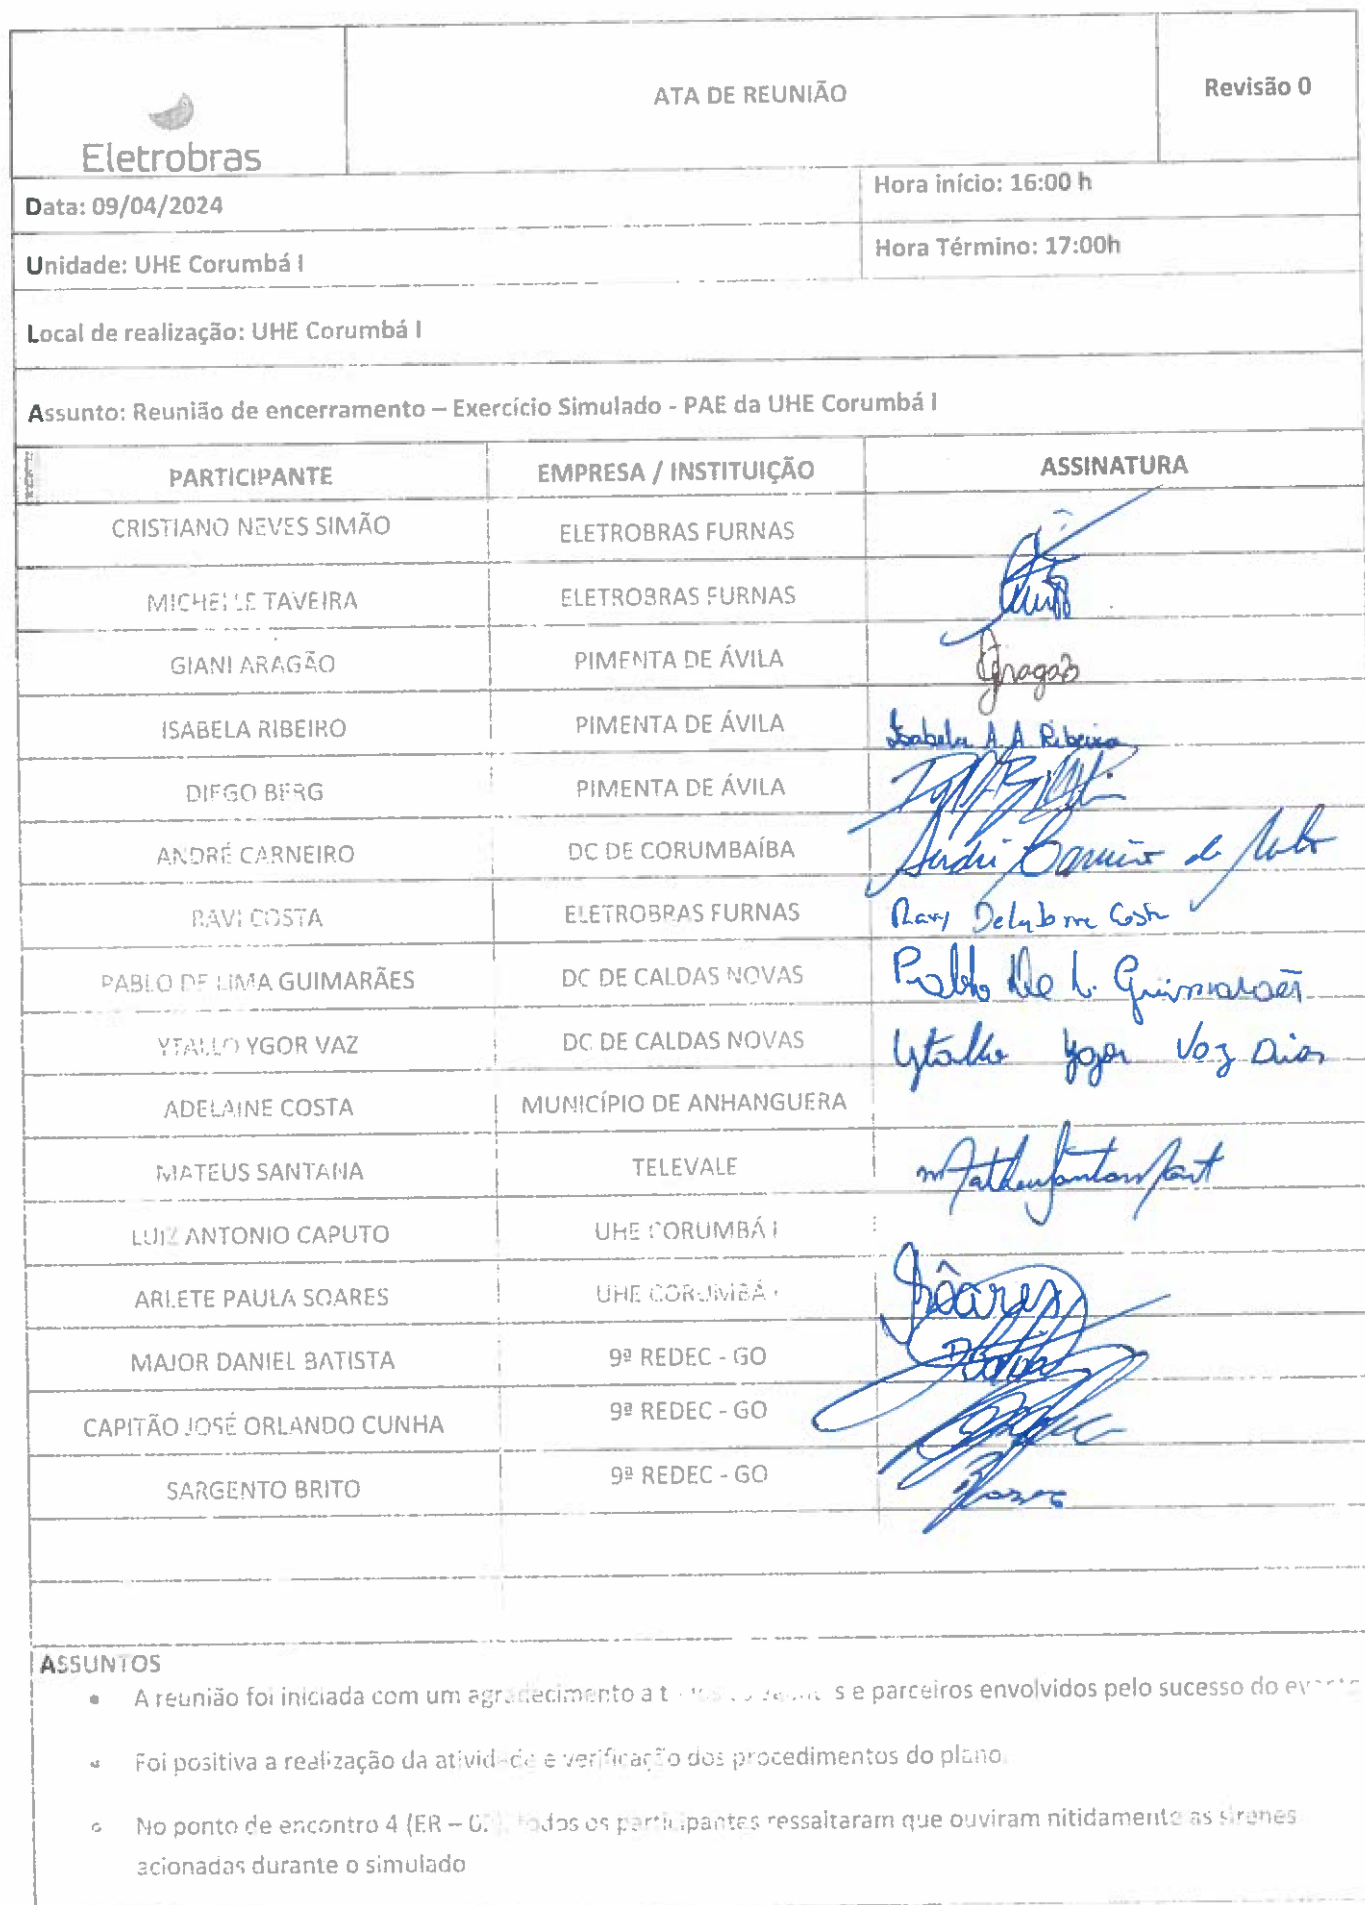 Eletrobras
ATA DE REUNIÃO
Revisão 0
Data: 09/04/2024
Hora início: 16:00 h
Unidade: UHE Corumbá I
Hora Término: 17:00h
Local de realização: UHE Corumbá I
Assunto: Reunião de encerramento – Exercício Simulado - PAE da UHE Corumbá I
PARTICIPANTE EMPRESA / INSTITUIÇÃO ASSINATURA
CRISTIANO NEVES SIMÃO ELETROBRAS FURNAS
MICHELLE TAVEIRA ELETROBRAS FURNAS
GIANI ARAGÃO PIMENTA DE ÁVILA Aragão
ISABELA RIBEIRO PIMENTA DE ÁVILA Isabela A. A. Ribeiro
DIEGO BERG PIMENTA DE ÁVILA
ANDRÉ CARNEIRO DC DE CORUMBAÍBA André Carneiro de
RAVI COSTA ELETROBRAS FURNAS Ravy Costa
PABLO DE LIMA GUIMARÃES DC DE CALDAS NOVAS Pablo De L. Guimarães
YTALLO YGOR VAZ DC DE CALDAS NOVAS Ytallo Ygor Vaz Dias
ADELAINE COSTA MUNICÍPIO DE ANHANGUERA
MATEUS SANTANA TELEVALE
LUIZ ANTONIO CAPUTO UHE CORUMBÁ I
ARLETE PAULA SOARES UHE CORUMBÁ I Sôares
MAJOR DANIEL BATISTA 9ª REDEC - GO
CAPITÃO JOSÉ ORLANDO CUNHA 9ª REDEC - GO
SARGENTO BRITO 9ª REDEC - GO
ASSUNTOS
• A reunião foi iniciada com um agradecimento a s e parceiros envolvidos pelo sucesso do evento
• Foi positiva a realização da atividade e verificação dos procedimentos do plano.
• No ponto de encontro 4 (ER – todos os participantes ressaltaram que ouviram nitidamente as sirenes
acionadas durante o simulado